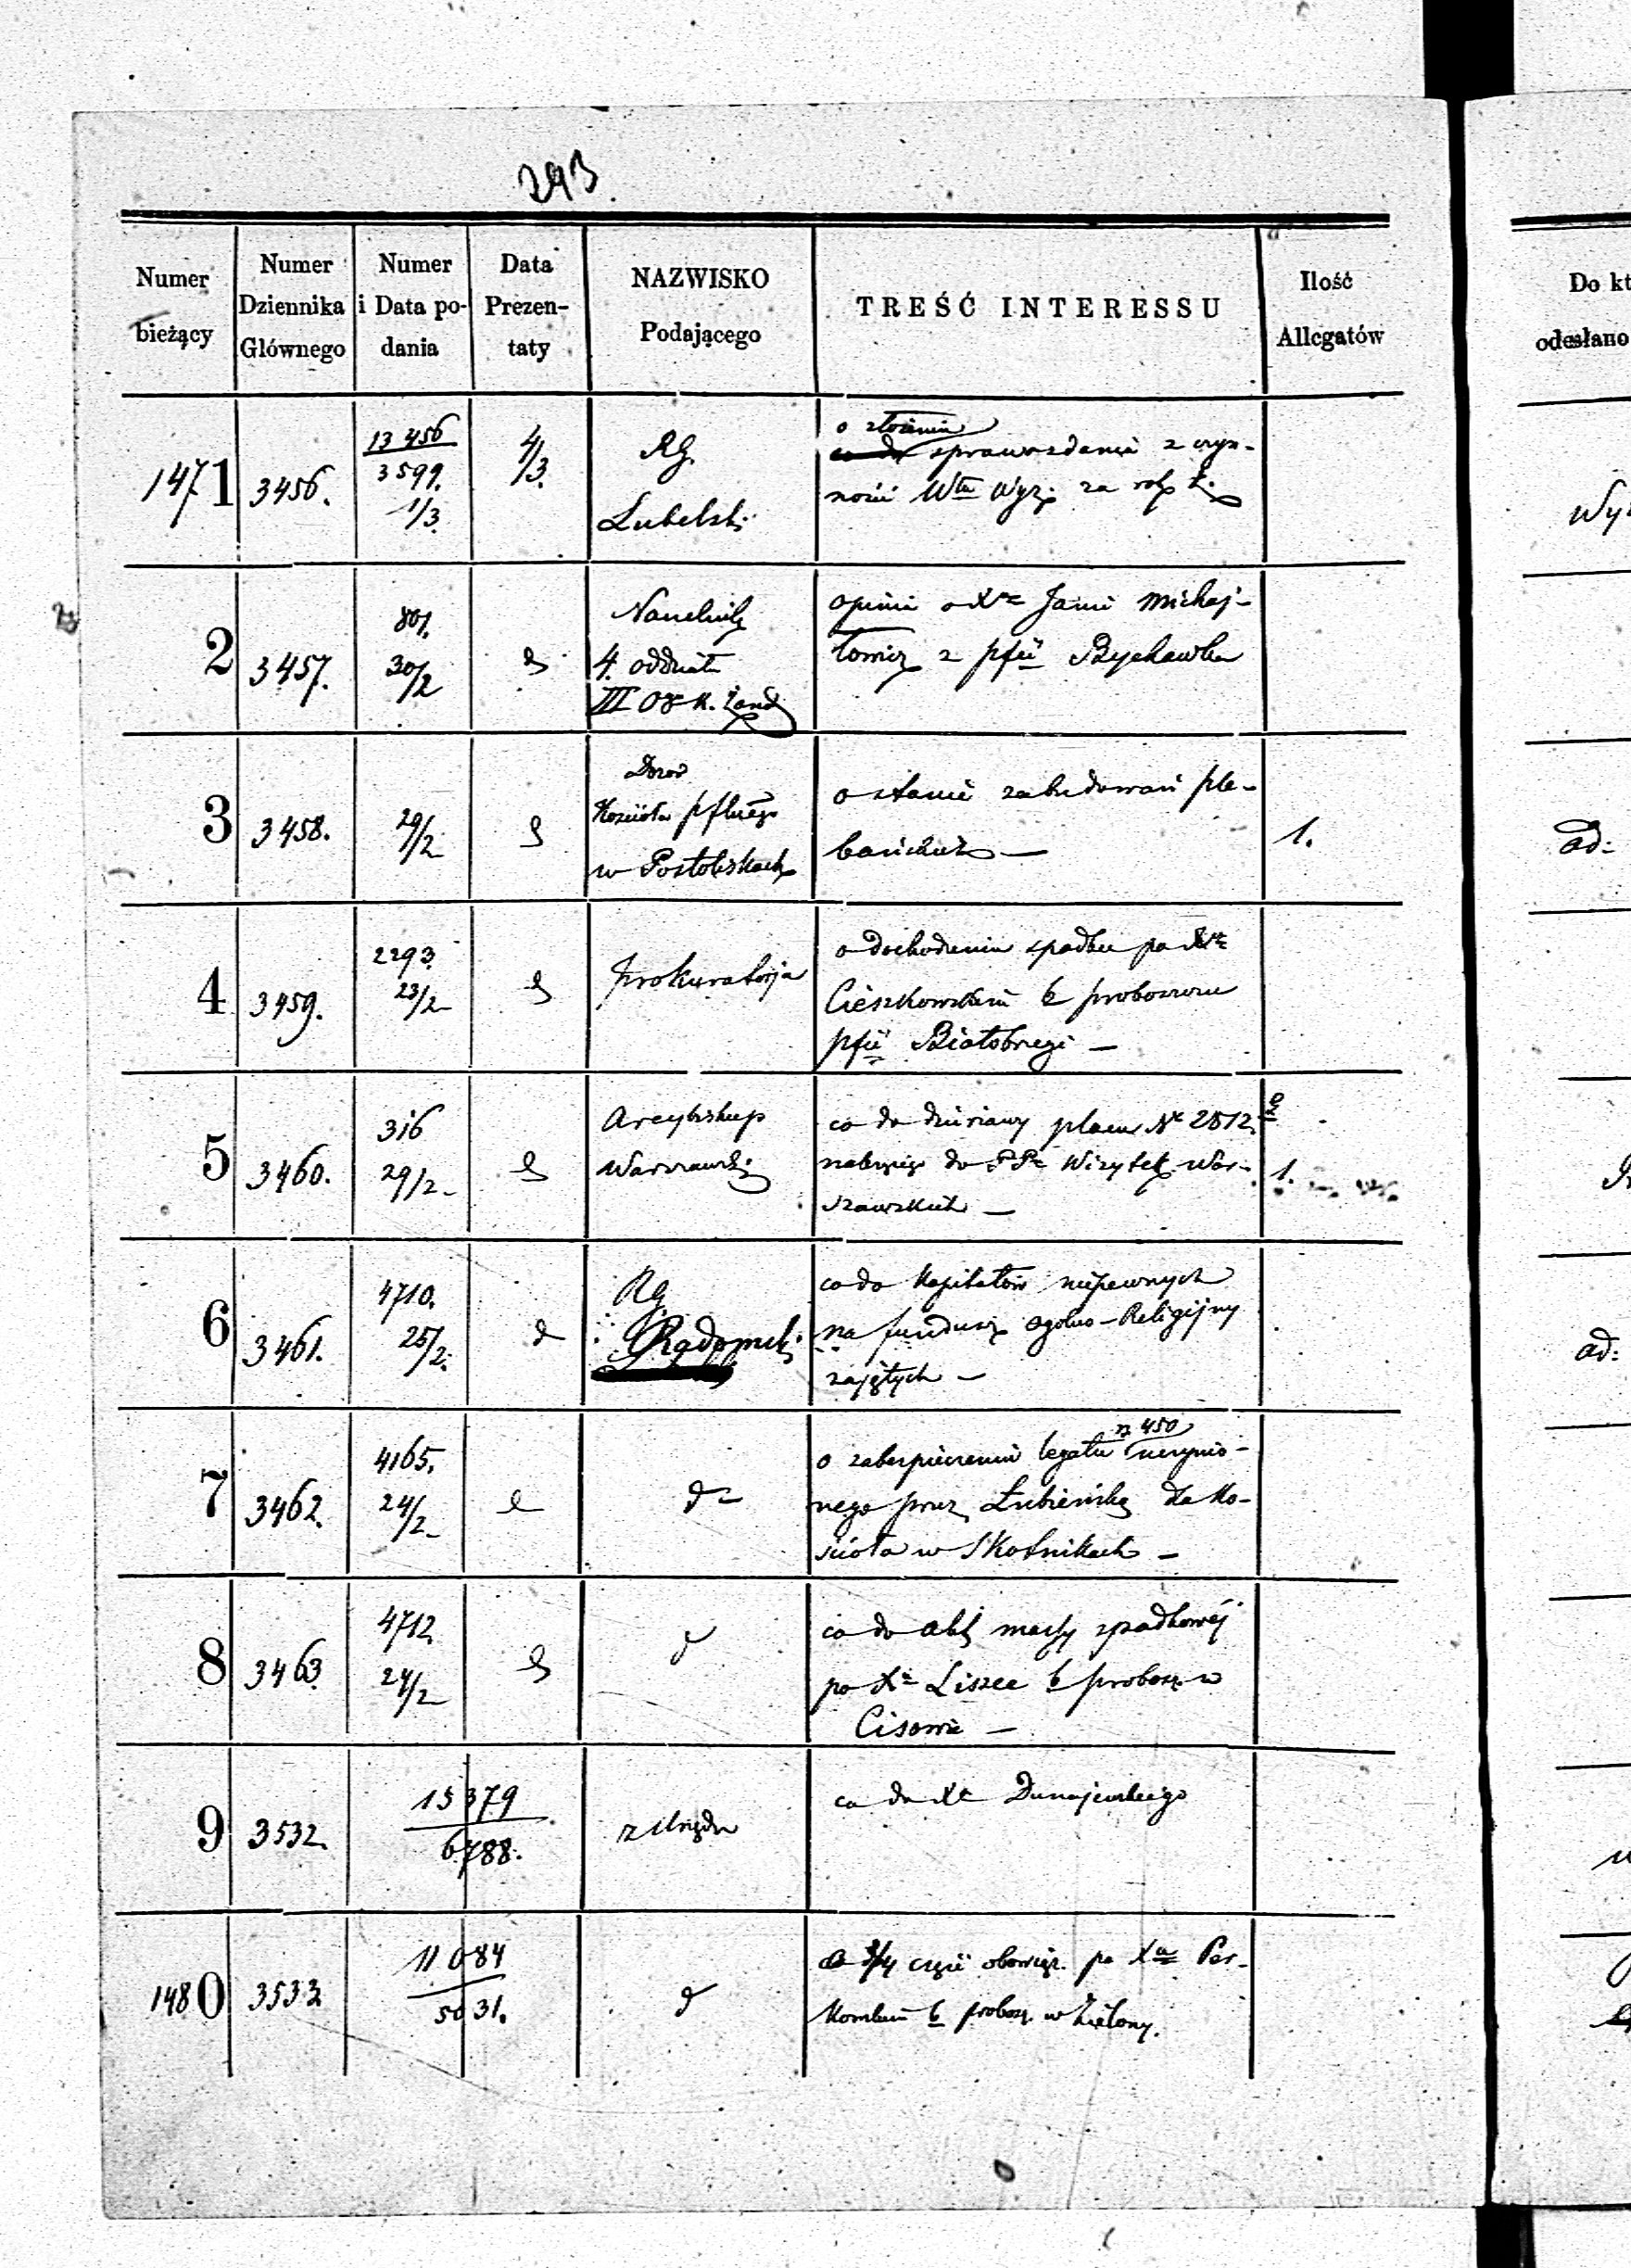 293.
Numer bieżący
Numer Dziennika Głównego
Numer i Data podania
Data Prezentaty
NAZWISKO Podającego
TREŚĆ INTERESSU
Ilość Allegatów
Do kt
odesłano
1471
3456.
13456
3599.
1/3.
4/3.
RG.
Lubelski
o złożenie
sprawozdania z czyn-
ności za
Wy
2
3457.
801.
30/2
Naczelnik
4. oddziału
III Ok. K. Żand
opinii o Xdz Janie Michaj-
łowicz z pfii Bychawka
3
3458.
29/2
Dozór
Kościoła pflnego
w Postoliskach
o stanie zabudowań ple-
bańskich —
1.
ad:
4
3459.
2293.
23/2
Prokuratorja
o dochodzeniu spadku po Xdz
Cieszkowskim b proboszczu
pfii Białobrzegi —
5
3460.
316
29/2
Arcybiskup
Warszawski
co do dzierżawy placu Nr 2512.
należącego do PP. Wizytek War-
szawskich —
1.
6
3461.
4710.
25/2.
RG
Radomski
co do Kapitałów niepewnych
na fundusz ogólno-Religijny
zajętych —
ad:
7
3462.
4165.
24/2
dº
rs 450
o zabezpieczeniu legatu uczynio-
nego przez Łubieńską dla Ko-
ścioła w Skotnikach —
8
3463.
4712.
24/2
d
co do akt massy spadkowéj
po Xdz Liszce b probosz. w
Cisowie —
9
3532.
15379
6788.
z Urzędu
co do Xdz Dunajewskiego
1480
3533
11084
5031.
d
o 3/4 części obowiąz. po Xdz Per-
kowskim b probosz. w Zielony.